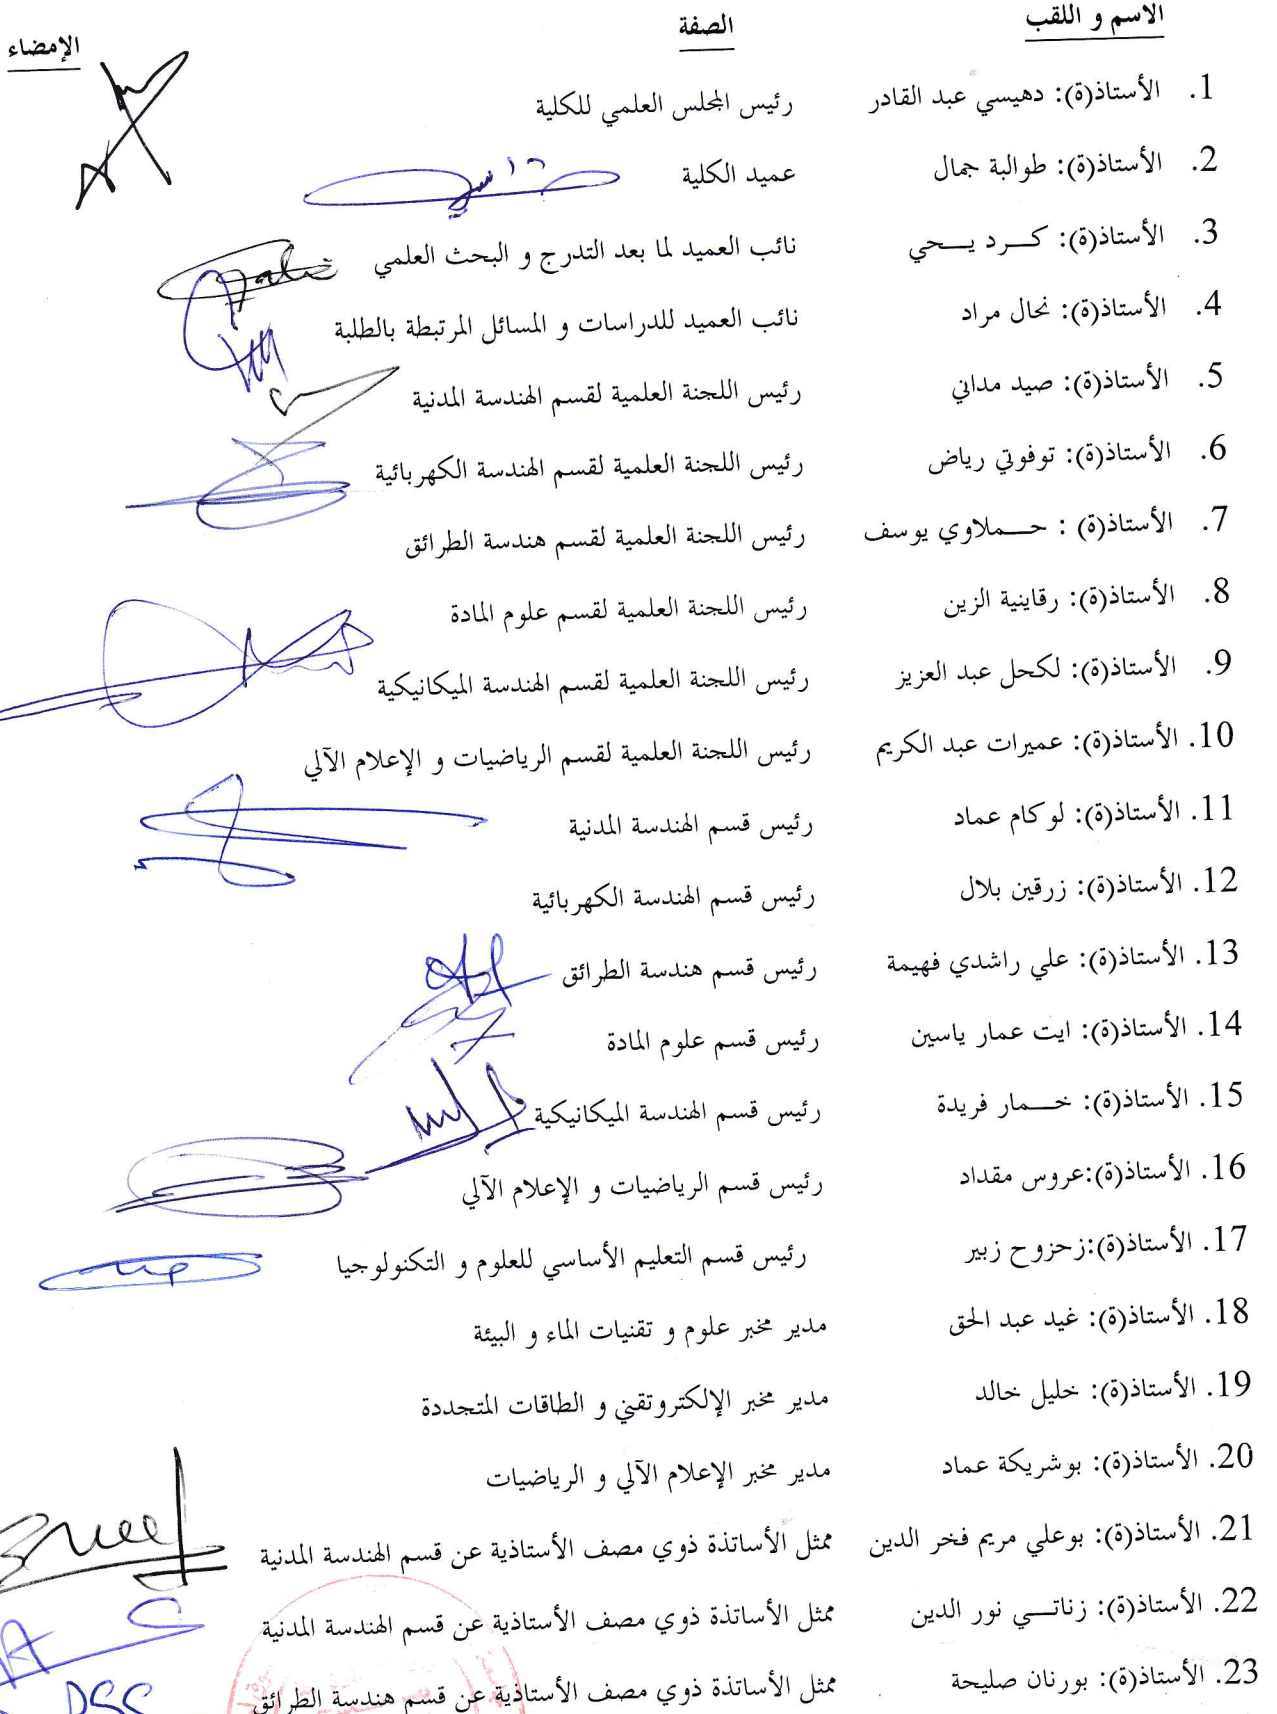 الاسم و اللقب الصفة الإمضاء
1. الأستاذ(ة): دهيسي عبد القادر رئيس المجلس العلمي للكلية
2. الأستاذ(ة): طوالبة جمال عميد الكلية
3. الأستاذ(ة): كـــرد يـــحي نائب العميد لما بعد التدرج و البحث العلمي
4. الأستاذ(ة): نحال مراد نائب العميد للدراسات و المسائل المرتبطة بالطلبة
5. الأستاذ(ة): صيد مداني رئيس اللجنة العلمية لقسم الهندسة المدنية
6. الأستاذ(ة): توفوتي رياض رئيس اللجنة العلمية لقسم الهندسة الكهربائية
7. الأستاذ(ة) : حـــملاوي يوسف رئيس اللجنة العلمية لقسم هندسة الطرائق
8. الأستاذ(ة): رقاينية الزين رئيس اللجنة العلمية لقسم علوم المادة
9. الأستاذ(ة): لكحل عبد العزيز رئيس اللجنة العلمية لقسم الهندسة الميكانيكية
10. الأستاذ(ة): عميرات عبد الكريم رئيس اللجنة العلمية لقسم الرياضيات و الإعلام الآلي
11. الأستاذ(ة): لوكام عماد رئيس قسم الهندسة المدنية
12. الأستاذ(ة): زرقين بلال رئيس قسم الهندسة الكهربائية
13. الأستاذ(ة): علي راشدي فهيمة رئيس قسم هندسة الطرائق
14. الأستاذ(ة): ايت عمار ياسين رئيس قسم علوم المادة
15. الأستاذ(ة): خـــمار فريدة رئيس قسم الهندسة الميكانيكية
16. الأستاذ(ة):عروس مقداد رئيس قسم الرياضيات و الإعلام الآلي
17. الأستاذ(ة):زحزوح زبير رئيس قسم التعليم الأساسي للعلوم و التكنولوجيا
18. الأستاذ(ة): غيد عبد الحق مدير مخبر علوم و تقنيات الماء و البيئة
19. الأستاذ(ة): خليل خالد مدير مخبر الإلكتروتقني و الطاقات المتجددة
20. الأستاذ(ة): بوشريكة عماد مدير مخبر الإعلام الآلي و الرياضيات
21. الأستاذ(ة): بوعلي مريم فخر الدين ممثل الأساتذة ذوي مصف الأستاذية عن قسم الهندسة المدنية
22. الأستاذ(ة): زناتـــي نور الدين ممثل الأساتذة ذوي مصف الأستاذية عن قسم الهندسة المدنية
23. الأستاذ(ة): بورنان صليحة ممثل الأساتذة ذوي مصف الأستاذية عن قسم هندسة الطرائق